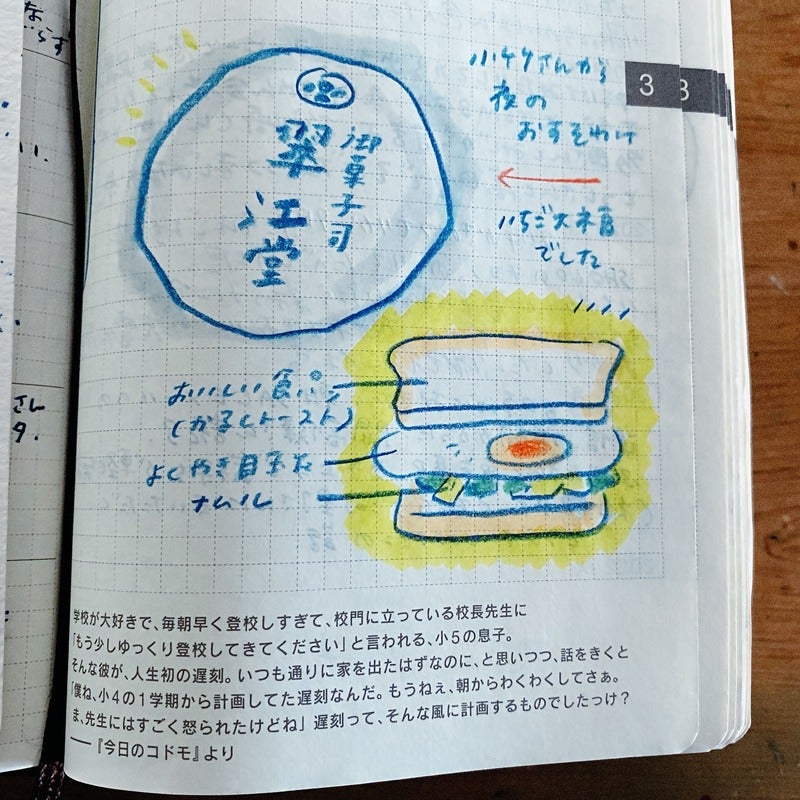 小ケケさんから
夜の
おすそわけ
3
御菓子司
翠江堂
いちご大福
でした
おいしい食パン
(かるくトースト)
よくやき目玉
ナムル
さん
9.
学校が大好きで、毎朝早く登校しすぎて、校門に立っている校長先生に
「もう少しゆっくり登校してきてください」と言われる、小5の息子。
そんな彼が、人生初の遅刻。いつも通りに家を出たはずなのに、と思いつつ、話をきくと
「僕ね、小4の1学期から計画してた遅刻なんだ。もうねぇ、朝からわくわくしてさぁ。
ま、先生にはすごく怒られたけどね」遅刻って、そんな風に計画するものでしたっけ?
――『今日のコドモ』より